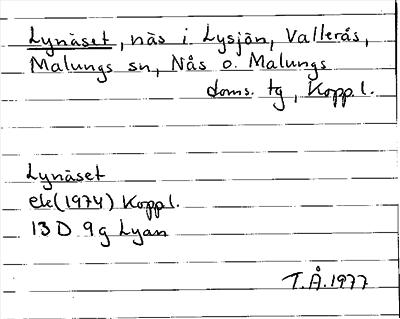 Lynäset, näs i Lysjön, Vallerås,
Malungs sn, Nås o. Malungs
doms. tg, Kopp.l.
Lynäset
ek(1974) Koppl.
13 D 9 g Lyan
T.Å.1977